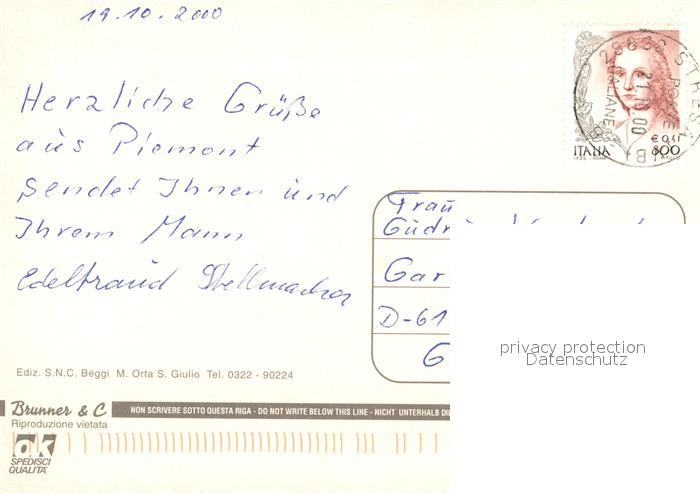 19.10.2000
Herzliche Grüße
aus Piemont
sendet Ihnen und
Ihrem Mann
Edeltraud Stellmacher
28838 STRESA
21.10.00
ITALIA
€ 0,41
800
Frau
Gudr
Gar
D-61
G
privacy protection
Datenschutz
Ediz. S.N.C. Beggi M. Orta S. Giulio Tel. 0322 - 90224
Brunner & C
NON SCRIVERE SOTTO QUESTA RIGA - DO NOT WRITE BELOW THIS LINE - NICHT UNTERHALB DIE
Riproduzione vietata
ok
SPEDISCI
QUALITA'